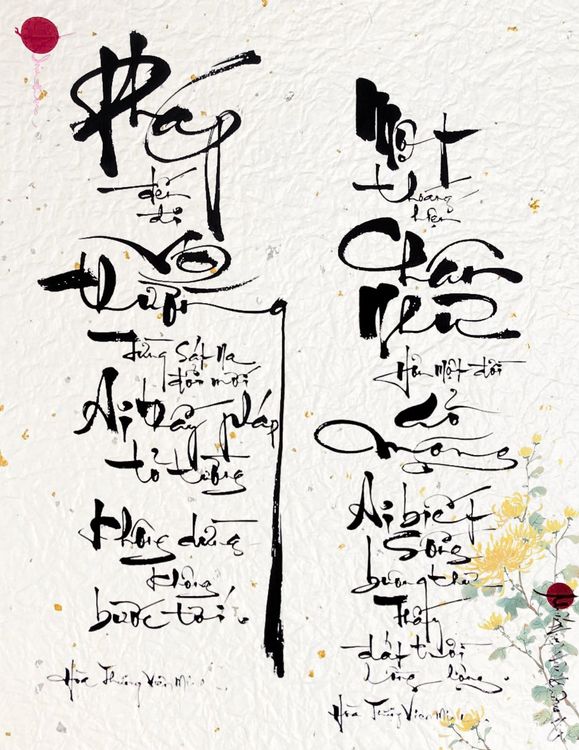 Pháp
đến
đi
Vô
thường
Từng sát na
đổi mới
Ai thấy pháp
tỏ tường
Không dừng
không
bước tới.
Hòa Thượng Viên Minh
Một
thoáng
hiện
Chân
Như
Hơn một đời
ảo
mộng
Ai biết
sống
buông thư
Thấy
đất trời
lồng lộng.
Hòa Thượng Viên Minh